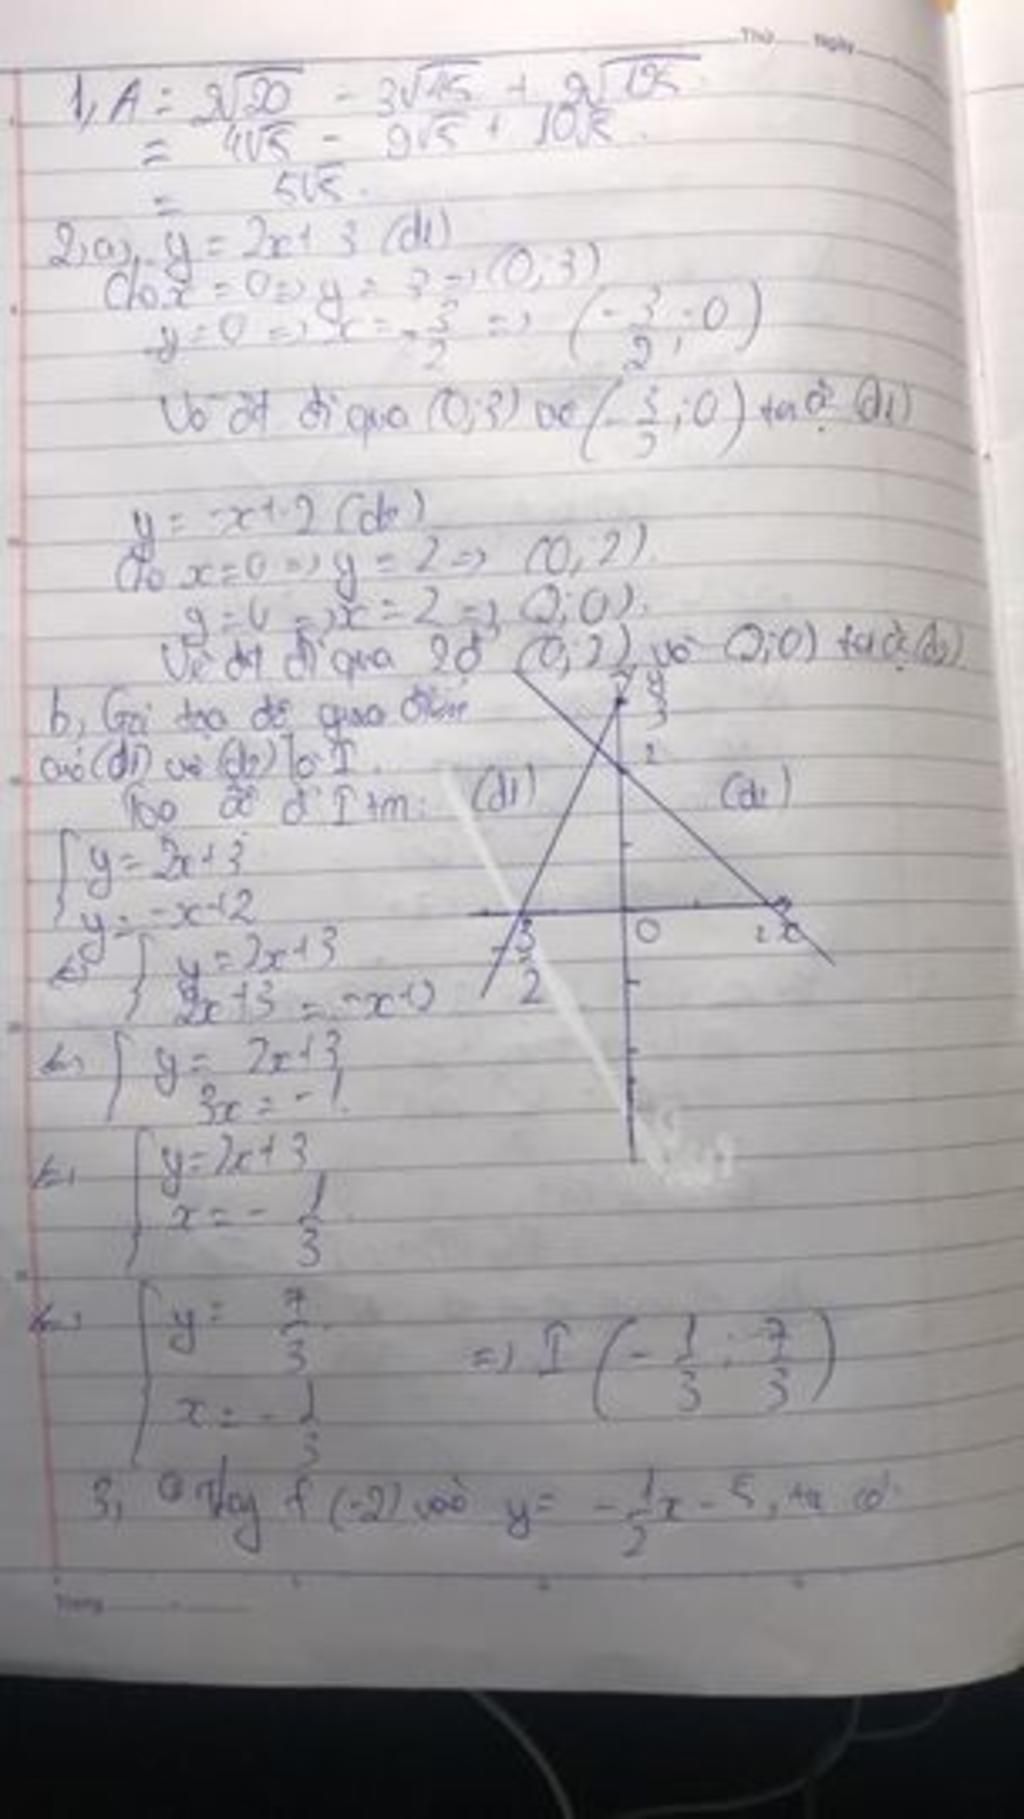 Thứ Ngày
1, A = 2√20 - 3√45 + 2√125
= 4√5 - 9√5 + 10√5.
= 5√5.
2, a, y = 2x+3 (d1)
Cho x = 0 => y = 3 => (0;3)
y=0 => x = -3/2 => (-3/2;0)
Vẽ đt đi qua (0;3) và (-3/2;0) ta đc (d1)
y = -x+2 (d2)
Cho x=0 => y = 2 => (0;2)
y=0 => x = 2 => (2;0).
Vẽ đt đi qua 2đ (0;2) và (2;0) ta đc (d2)
b, Gọi tọa độ giao điểm
của (d1) và (d2) là I.
Tọa độ đ I t/m:
{ y = 2x+3
y = -x+2
<=> { y = 2x+3
2x+3 = -x+2
<=> { y = 2x+3
3x = -1
<=> { y = 2x+3
x = -1/3
<=> { y = 7/3
x = -1/3
=> I (-1/3; 7/3)
y
3
2
(d1)
(d2)
-3/2
O
2 x
3, Thay f (-2) vào y = -1/2x - 5, ta có
Trang